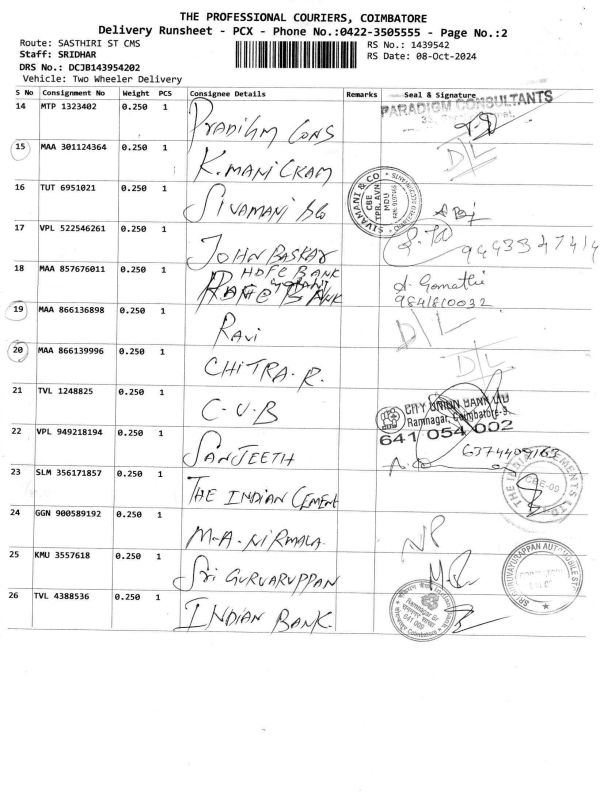 THE PROFESSIONAL COURIERS, COIMBATORE
Delivery Runsheet - PCX - Phone No.:0422-3505555 - Page No.:2
Route: SASTHIRI ST CMS RS No.: 1439542
Staff: SRIDHAR RS Date: 08-Oct-2024
DRS No.: DCJB143954202
Vehicle: Two Wheeler Delivery
S No Consignment No Weight PCS Consignee Details Remarks Seal & Signature
14 MTP 1323402 0.250 1 PRADIGM CONS PARADIGM CONSULTANTS
15 MAA 301124364 0.250 1 K. MANICKAM D/L
16 TUT 6951021 0.250 1 SIVAMANI &CO SIVAMANI & CO CBE TPR. AVN MDU
17 VPL 522546261 0.250 1 JOHN BASKAR
18 MAA 857676011 0.250 1 HDFC BANK d. Gomathi
9841810032
19 MAA 866136898 0.250 1 RAVI D/L
20 MAA 866139996 0.250 1 CHITRA. R. D/L
21 TVL 1248825 0.250 1 C-U-B CITY UNION BANK LTD
Ramnagar, Coimbatore-9.
641 054 002
22 VPL 949218194 0.250 1 SANJEETH 6374409163
23 SLM 356171857 0.250 1 THE INDIAN CEMENT THE INDIA CEMENTS LTD CBE-09
24 GGN 900589192 0.250 1 M-A. NIRMALA NP
25 KMU 3557618 0.250 1 Sri GURUVARUPPAN SRI GURUVAYURAPPAN AUTOMOBILE
26 TVL 4388536 0.250 1 INDIAN BANK. Ramnagar Br 641 009 Coimbatore